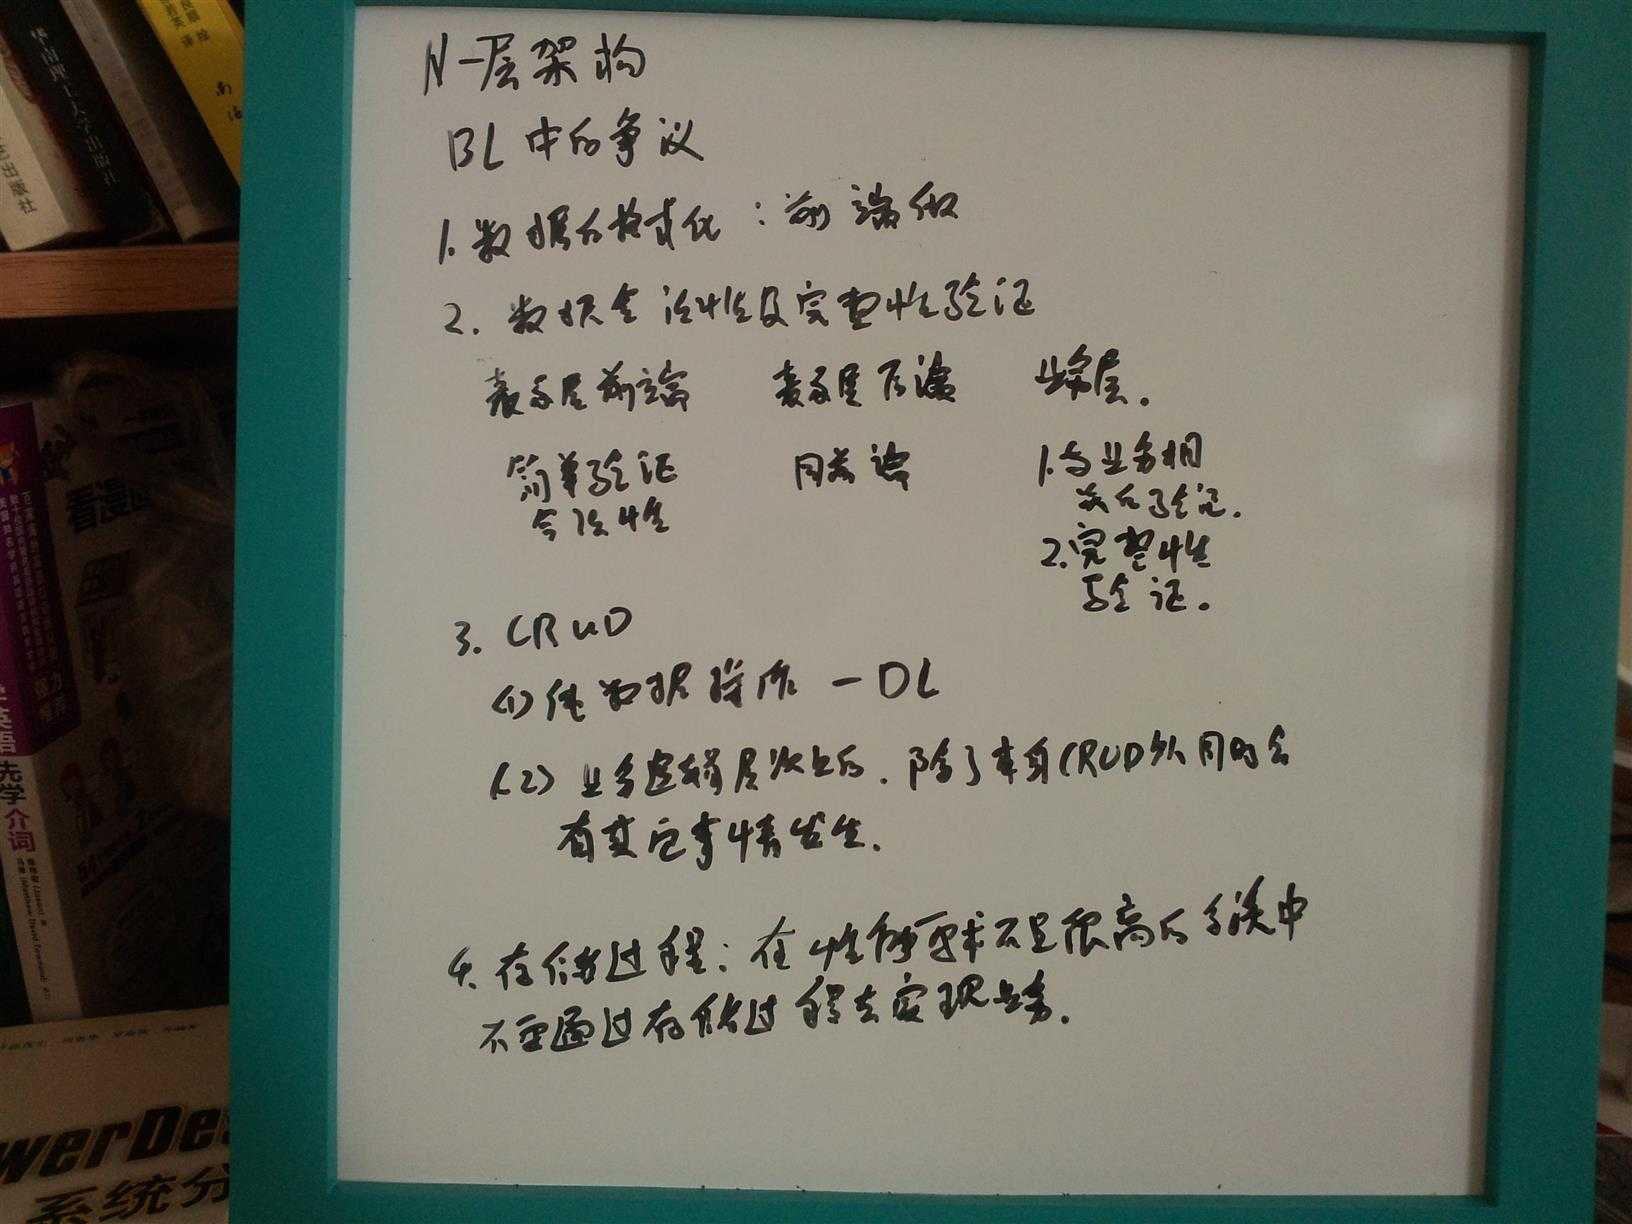 N-层架构
BL中的争议
1. 数据的格式化：前端做
2. 数据合法性及完整性验证
表示层前端 表示层后端 业务层.
简单验证
合法性
同前端
1.与业务相
关的验证.
2.完整性
验证.
3. CRUD
(1) 纯数据操作 - DL
(2) 业务逻辑层次上的. 除了本身CRUD外同时会
有其它事情发生.
4. 存储过程：在性能要求不是很高的系统中
不要通过存储过程去实现业务.
看漫画
英语
先学
介词
werDe
系统分